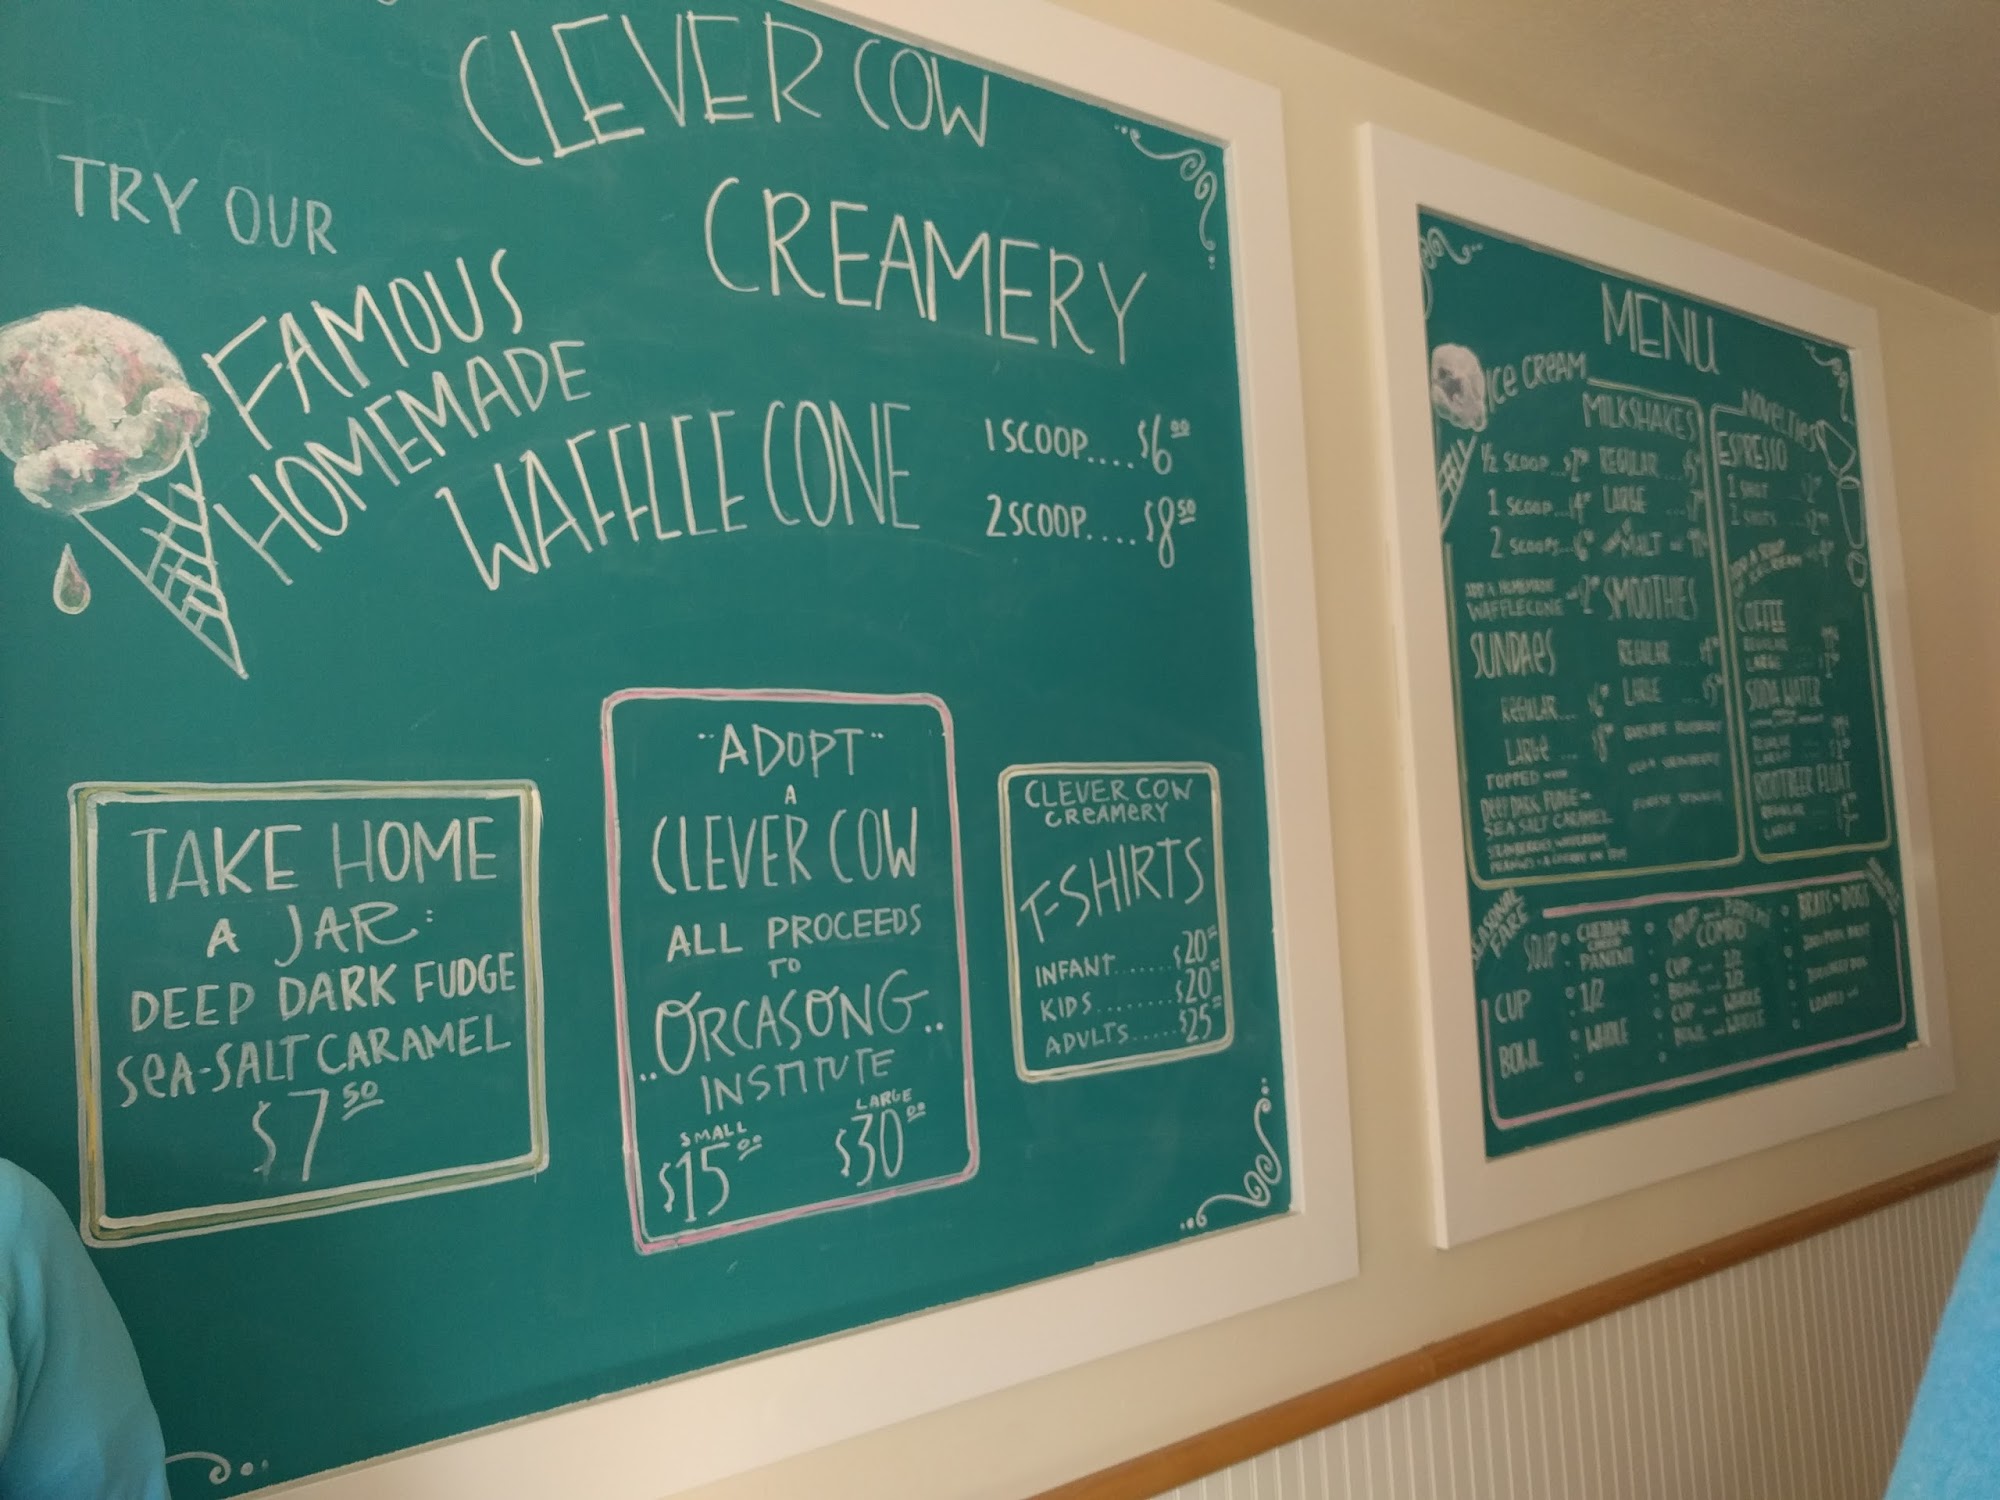 CLEVER COW
CREAMERY
TRY OUR
FAMOUS
HOMEMADE
WAFFLE CONE
1 SCOOP.... $6.00
2 SCOOP.... $8.50
TAKE HOME
A JAR:
DEEP DARK FUDGE
SEA-SALT CARAMEL
$7.50
"ADOPT"
A
CLEVER COW
ALL PROCEEDS
TO
ORCASONG
INSTITUTE
SMALL
$15.00
LARGE
$30.00
CLEVER COW
CREAMERY
T-SHIRTS
INFANT....... $20
KIDS........ $20
ADULTS..... $25
MENU
ICE CREAM
1/2 SCOOP
1 SCOOP
2 SCOOPS
ADD A HOMEMADE
WAFFLECONE
SUNDAES
REGULAR
LARGE
TOPPED WITH
DEEP DARK FUDGE
SEA SALT CARAMEL
MILKSHAKES
REGULAR
LARGE
MALT
SMOOTHIES
REGULAR
LARGE
NOVELTIES
ESPRESSO
1 SHOT
2 SHOTS
COFFEE
REGULAR
LARGE
SODA WATER
ROOTBEER FLOAT
SEASONAL
FARE
SOUP
CUP
BOWL
CHEDDAR
PANINI
1/2
WHOLE
SOUP PANINI
COMBO
CUP 1/2
BOWL 1/2
CUP WHOLE
BOWL WHOLE
BRATS DOGS
LOADED